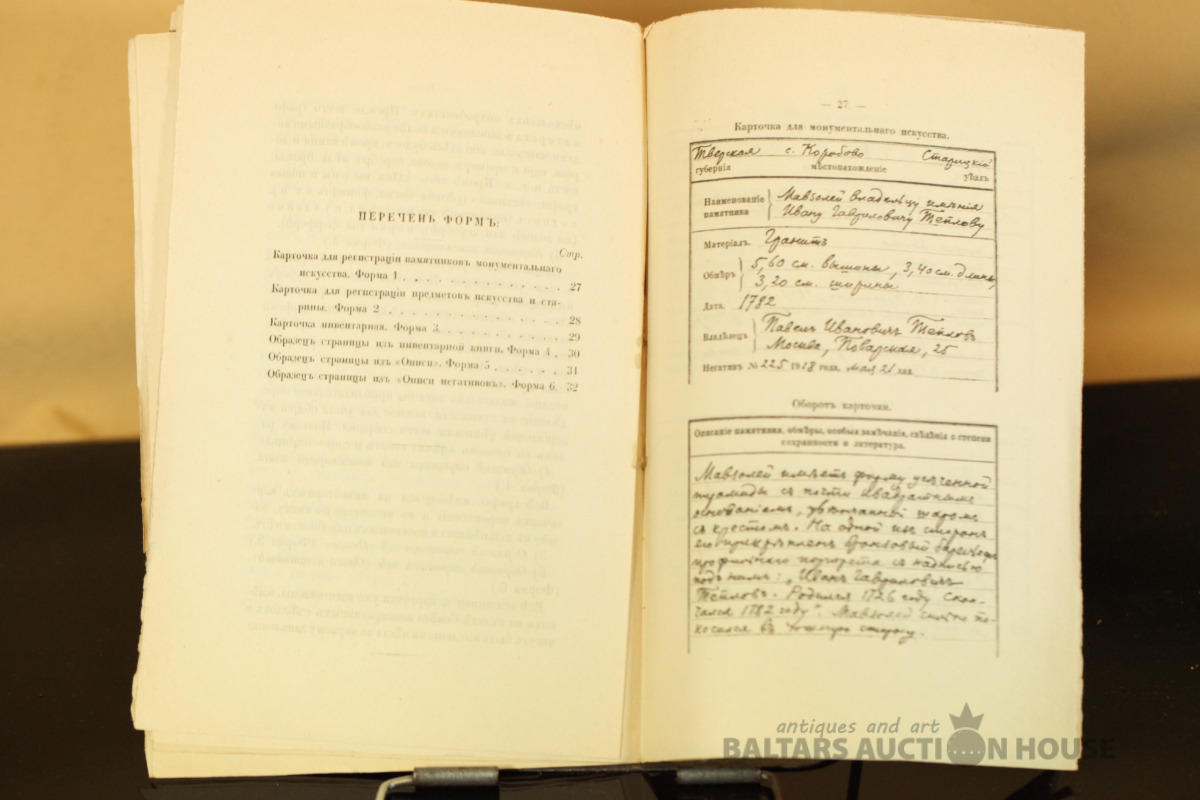 ПЕРЕЧЕНЬ ФОРМЪ:
Стр.
Карточка для регистраціи памятниковъ монументальнаго
искусства. Форма 1 . . . . . . . . . . . . 27
Карточка для регистраціи предметовъ искусства и ста-
рины. Форма 2 . . . . . . . . . . . . . 28
Карточка инвентарная. Форма 3. . . . . . . . . 29
Образецъ страницы изъ инвентарной книги. Форма 4 . 30
Образецъ страницы изъ «Описи». Форма 5 . . . . . 31
Образецъ страницы изъ «Описи негативовъ». Форма 6. 32
— 27 —
Карточка для монументальнаго искусства.
Тверская с. Коробово Старицкій
губернія мѣстонахожденіе уѣздъ
Наименованіе памятника
Мавзолей владѣльцу имѣнія
Ивану Гавриловичу Теплову
Матеріалъ. Гранитъ
Обмѣръ 5,60 см. вышины, 3,40 см. длины,
3,20 см. ширины
Дата. 1782
Владѣлецъ Павелъ Ивановичъ Тепловъ
Москва, Поварская, 25
Негативъ № 225 1918 года, мая 21 дня.
Оборотъ карточки.
Описаніе памятника, обмѣры, особыя замѣчанія, свѣдѣнія о степени
сохранности и литература.
Мавзолей имѣетъ форму усѣченной
пирамиды съ почти квадратнымъ
основаніемъ, увѣнчанной шаромъ
съ крестомъ. На одной изъ сторонъ
его прикрѣпленъ бронзовый барельефъ
профильнаго портрета съ надписью
подъ нимъ: „Иванъ Гавриловичъ
Тепловъ. Родился 1726 году Скон-
чался 1782 году". Мавзолей по-
косился въ сторону.
antiques and art
BALTARS AUCTION HOUSE